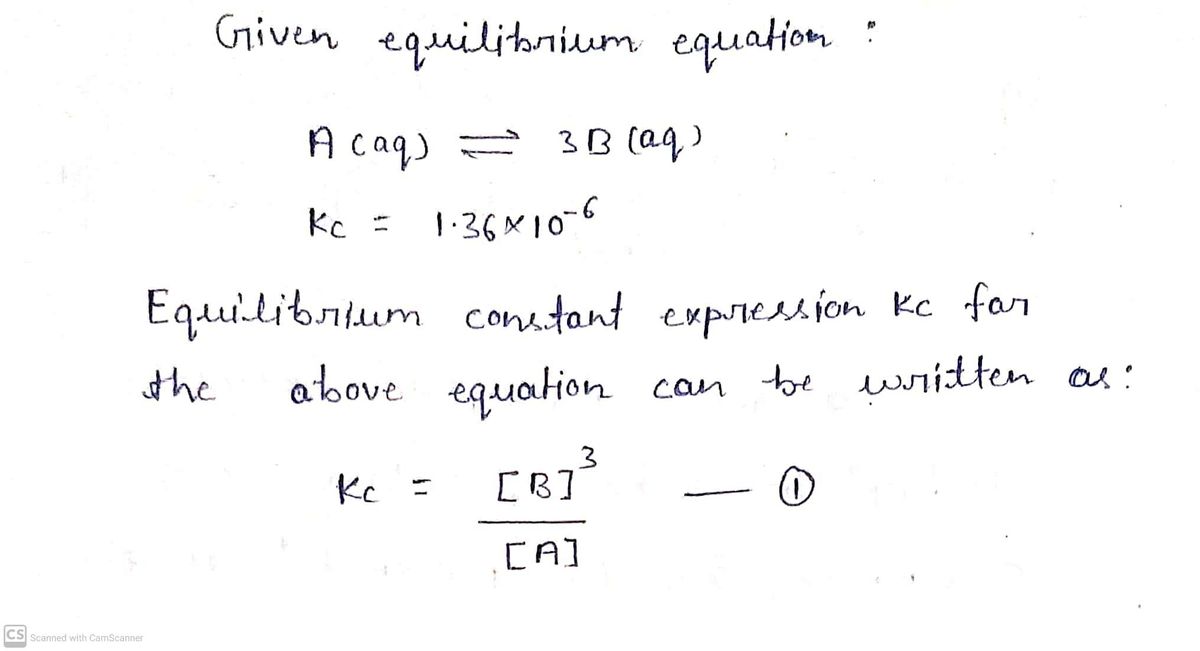 Given equilibrium equation :
A (aq) ⇌ 3B (aq)
Kc = 1.36×10⁻⁶
Equilibrium constant expression Kc for
the above equation can be written as:
Kc = [B]³ — ①
[A]
CS Scanned with CamScanner